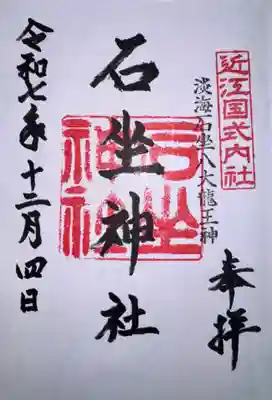 近江国式内社
淡海石坐八大龍王神
奉拝
石坐神社
石坐神社
令和七年十二月四日